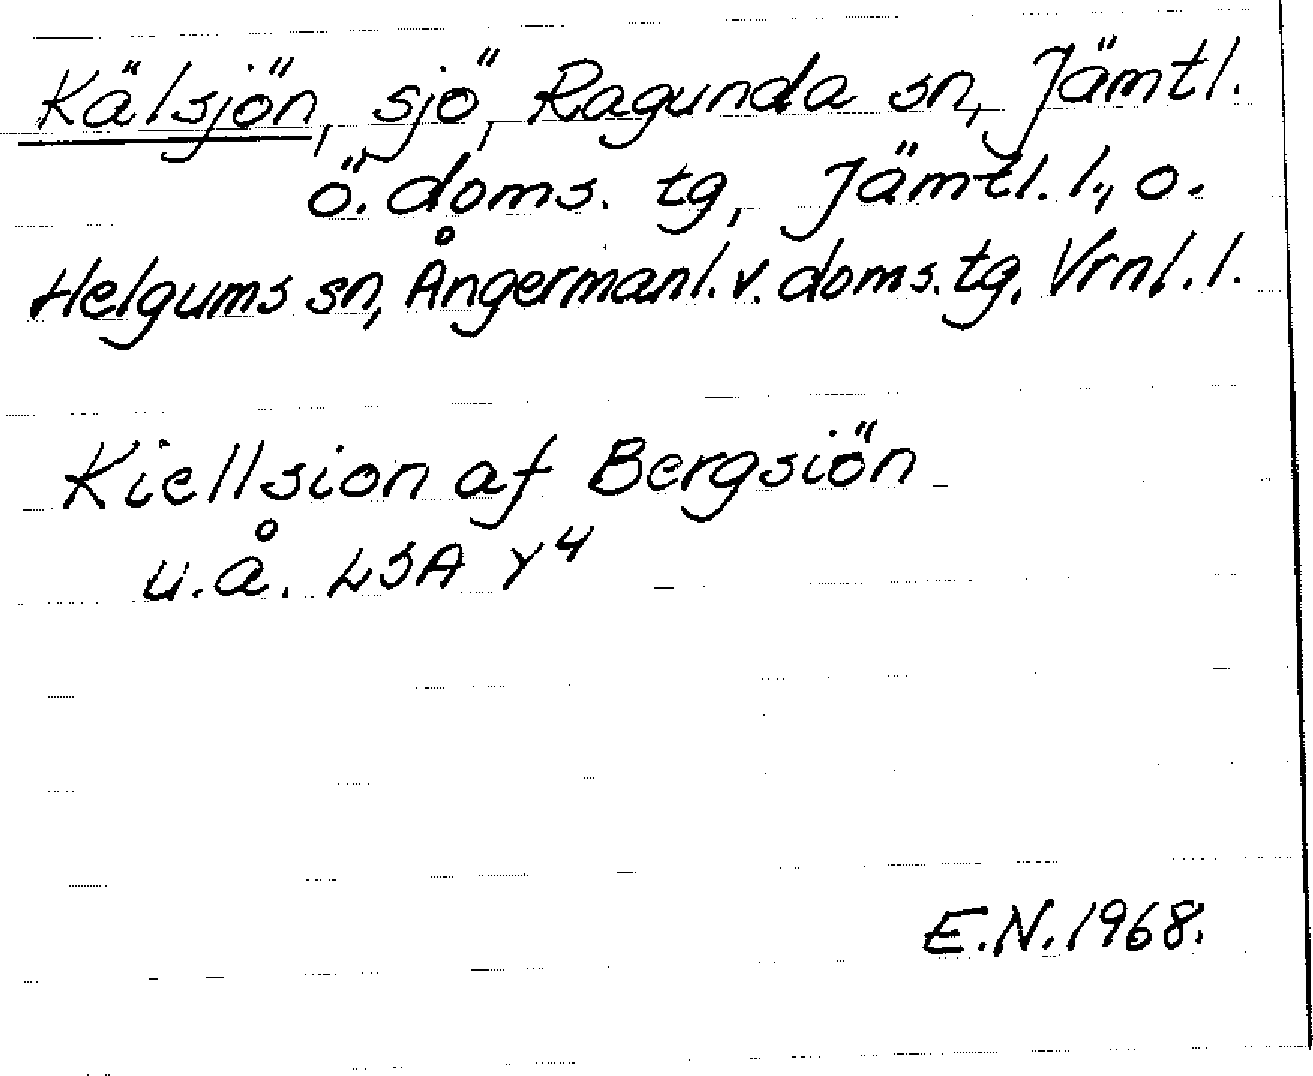 Kälsjön, sjö, Ragunda sn, Jämtl.
ö. doms. tg, Jämtl. l., o.
Helgums sn, Ångermanl. v. doms. tg. Vrnl. l.
Kiellsion af Bergsiön
u.å. LSA Y4
E.N. 1968.